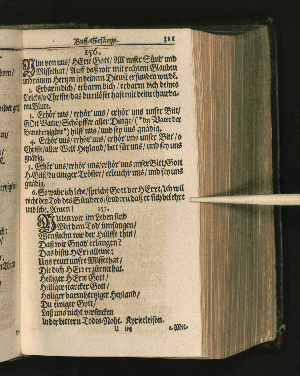 Buß-Gesänge. 311
156.
Nim von uns/ HErre Gott/ All unser Sünd und
Missethat/ Auff daß wir mit rechtem Glauben
und reinem Hertzen in deinem Dienst erfunden werde.
2. Erbarm dich/ erbarm dich/ erbarm dich deines
Volcks/ o Christe/ das du erlöset hast mit deim theurba-
ren Blute.
3. Erhör uns/ erhör uns/ erhör uns unser Bitt/
GOtt Vatter/ Schöpffer aller Dinge/ hilff uns/ und sey uns gnädig.
4. Erhör uns/ erhör uns/ erhör uns unser Bitt/ o
Christe/ aller Welt Heyland/ bitt für uns/ und sey uns
gnädig.
5. Erhör uns/ erhör uns/ erhör uns unser Bitt/ Gott
H. Geist/ du einiger Tröster/ erleucht uns/ und sey uns
gnädig.
6. So wahr ich lebe/ spricht Gott der HErre/ Ich wil
nicht den Tod des Sünders/ sondern daß er sich bekehre
und lebe/ Amen! 157.
Mitten wir im Leben sind
Mit dem Tod umfangen/
Wen suchn wir der Hülffe thut/
Daß wir Gnad erlangen?
Das bistu HErr alleine:
Uns reuet unsre Missethat/
Die dich HErr erzürnet hat.
Heiliger HErre Gott/
Heiliger starcker Gott/
Heiliger barmhertziger Heyland/
Du ewiger Gott/
Laß uns nicht versincken
In der bittern Todes-Noht. Kyrieleison.
U iiij 2. Mit-